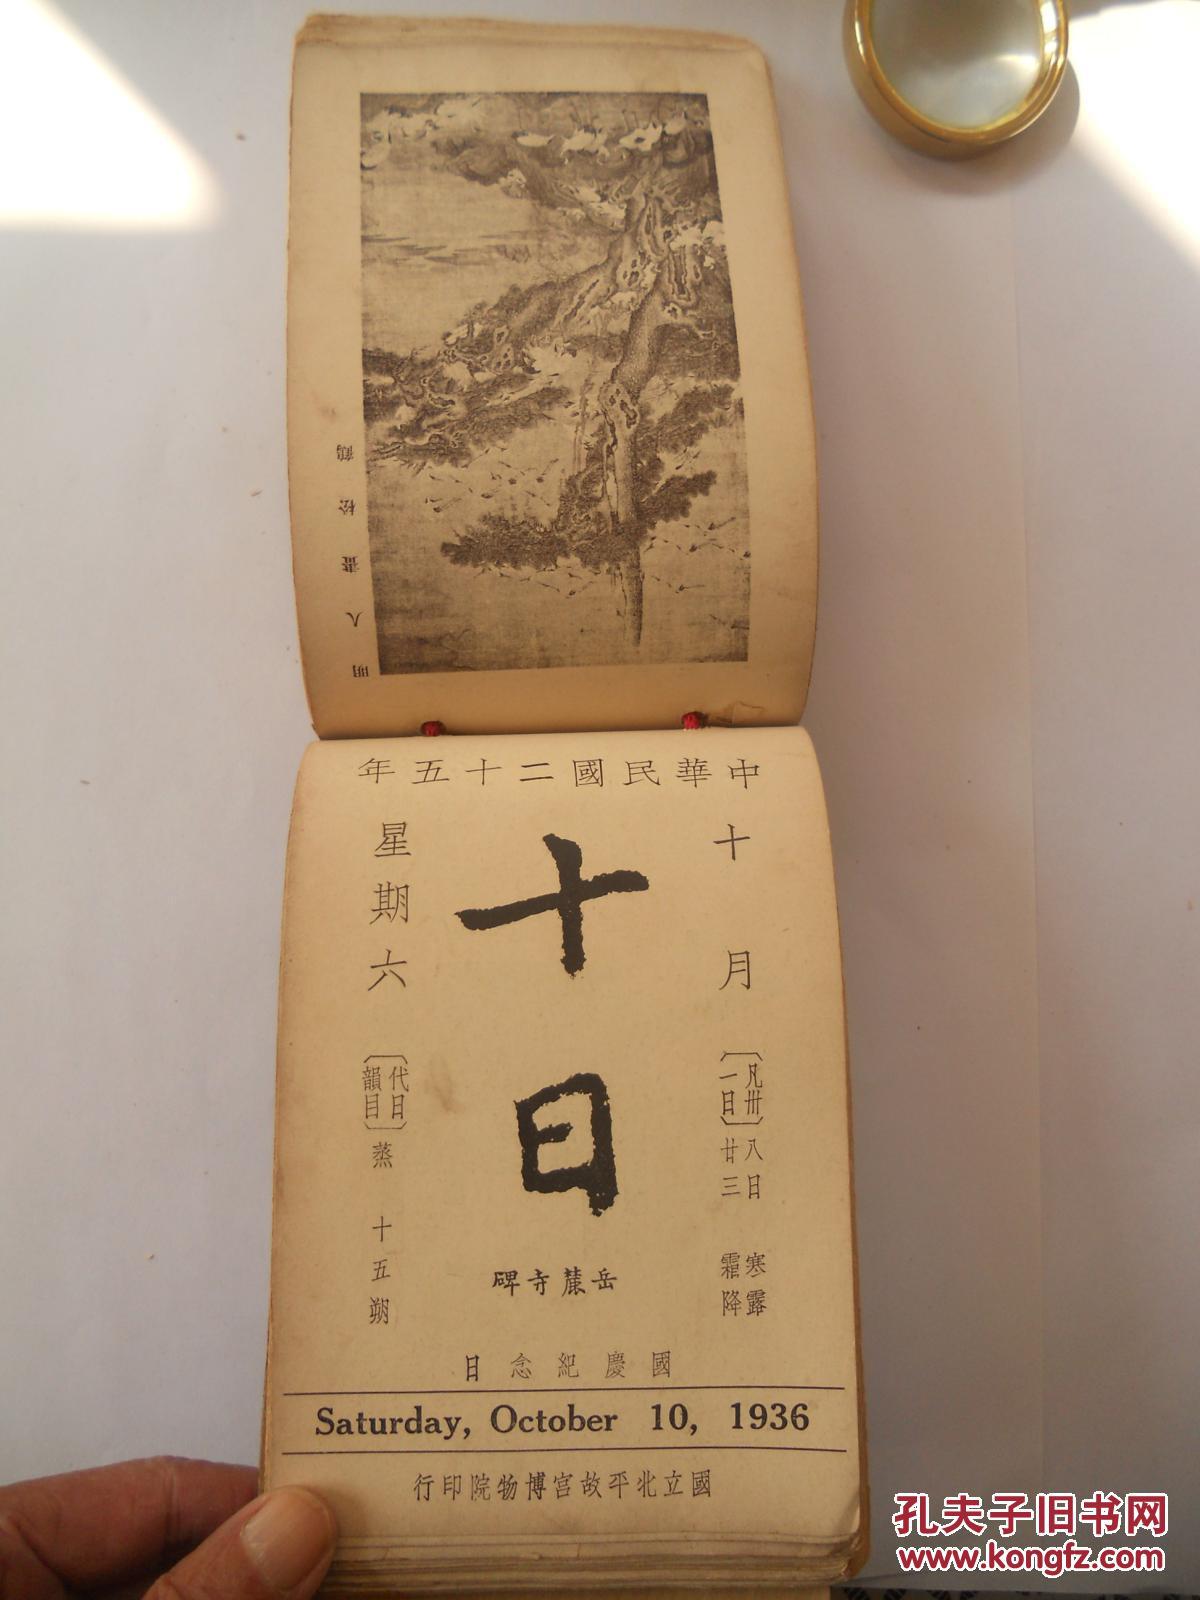 明人畫松鶴
中華民國二十五年
十月
〔凡卅一日〕
八日 寒露
廿三 霜降
十日
岳麓寺碑
星期六
〔代日韻目〕蒸 十五朔
國慶紀念日
Saturday, October 10, 1936
國立北平故宮博物院印行
孔夫子旧书网
www.kongfz.com